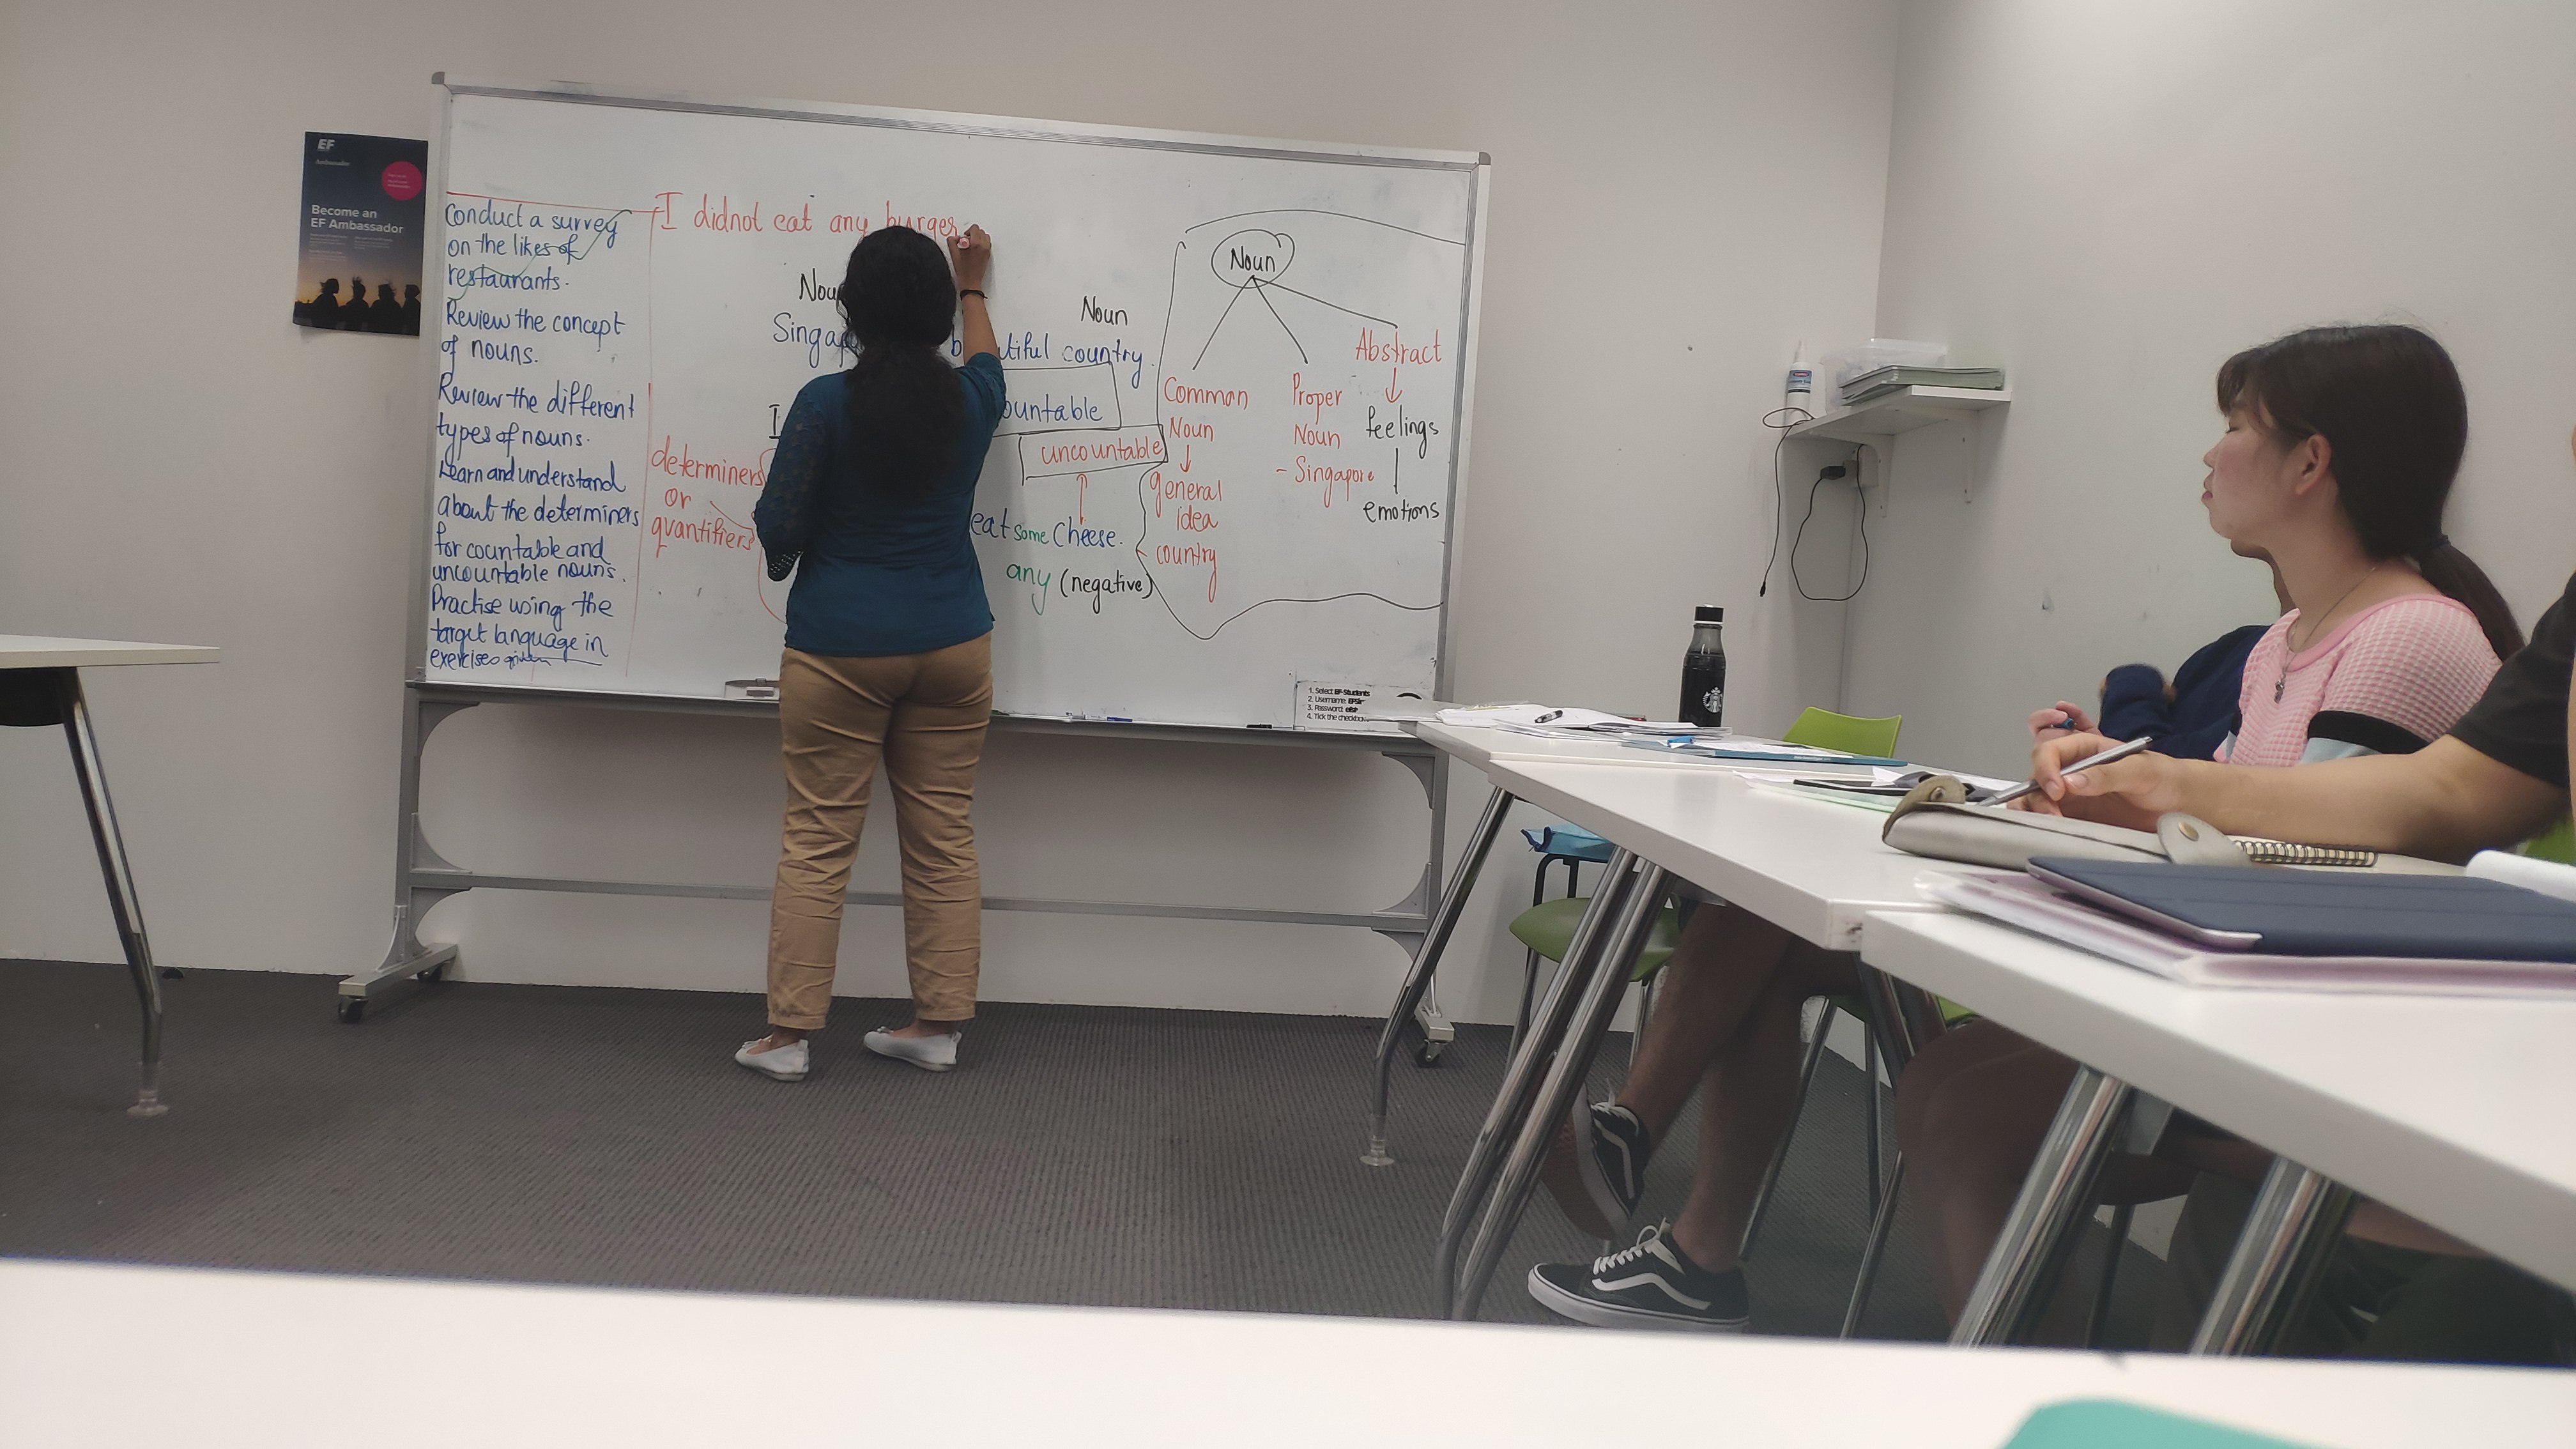 EF
Ambassador
Become an
EF Ambassador
Conduct a survey
on the likes of
restaurants.
Review the concept
of nouns.
Review the different
types of nouns.
Learn and understand
about the determiners
for countable and
uncountable nouns.
Practise using the
target language in
exercises given
I didnot eat any burger
Noun
country.
I
determiners
or
quantifiers
uncountable
eat some Cheese.
any (negative)
Noun
Common
Noun
general
idea
country
Proper
Noun
- Singapore
Abstract
feelings
emotions
1. Select EF-Students
2. Username:
3. Password:
4. Tick the checkbox